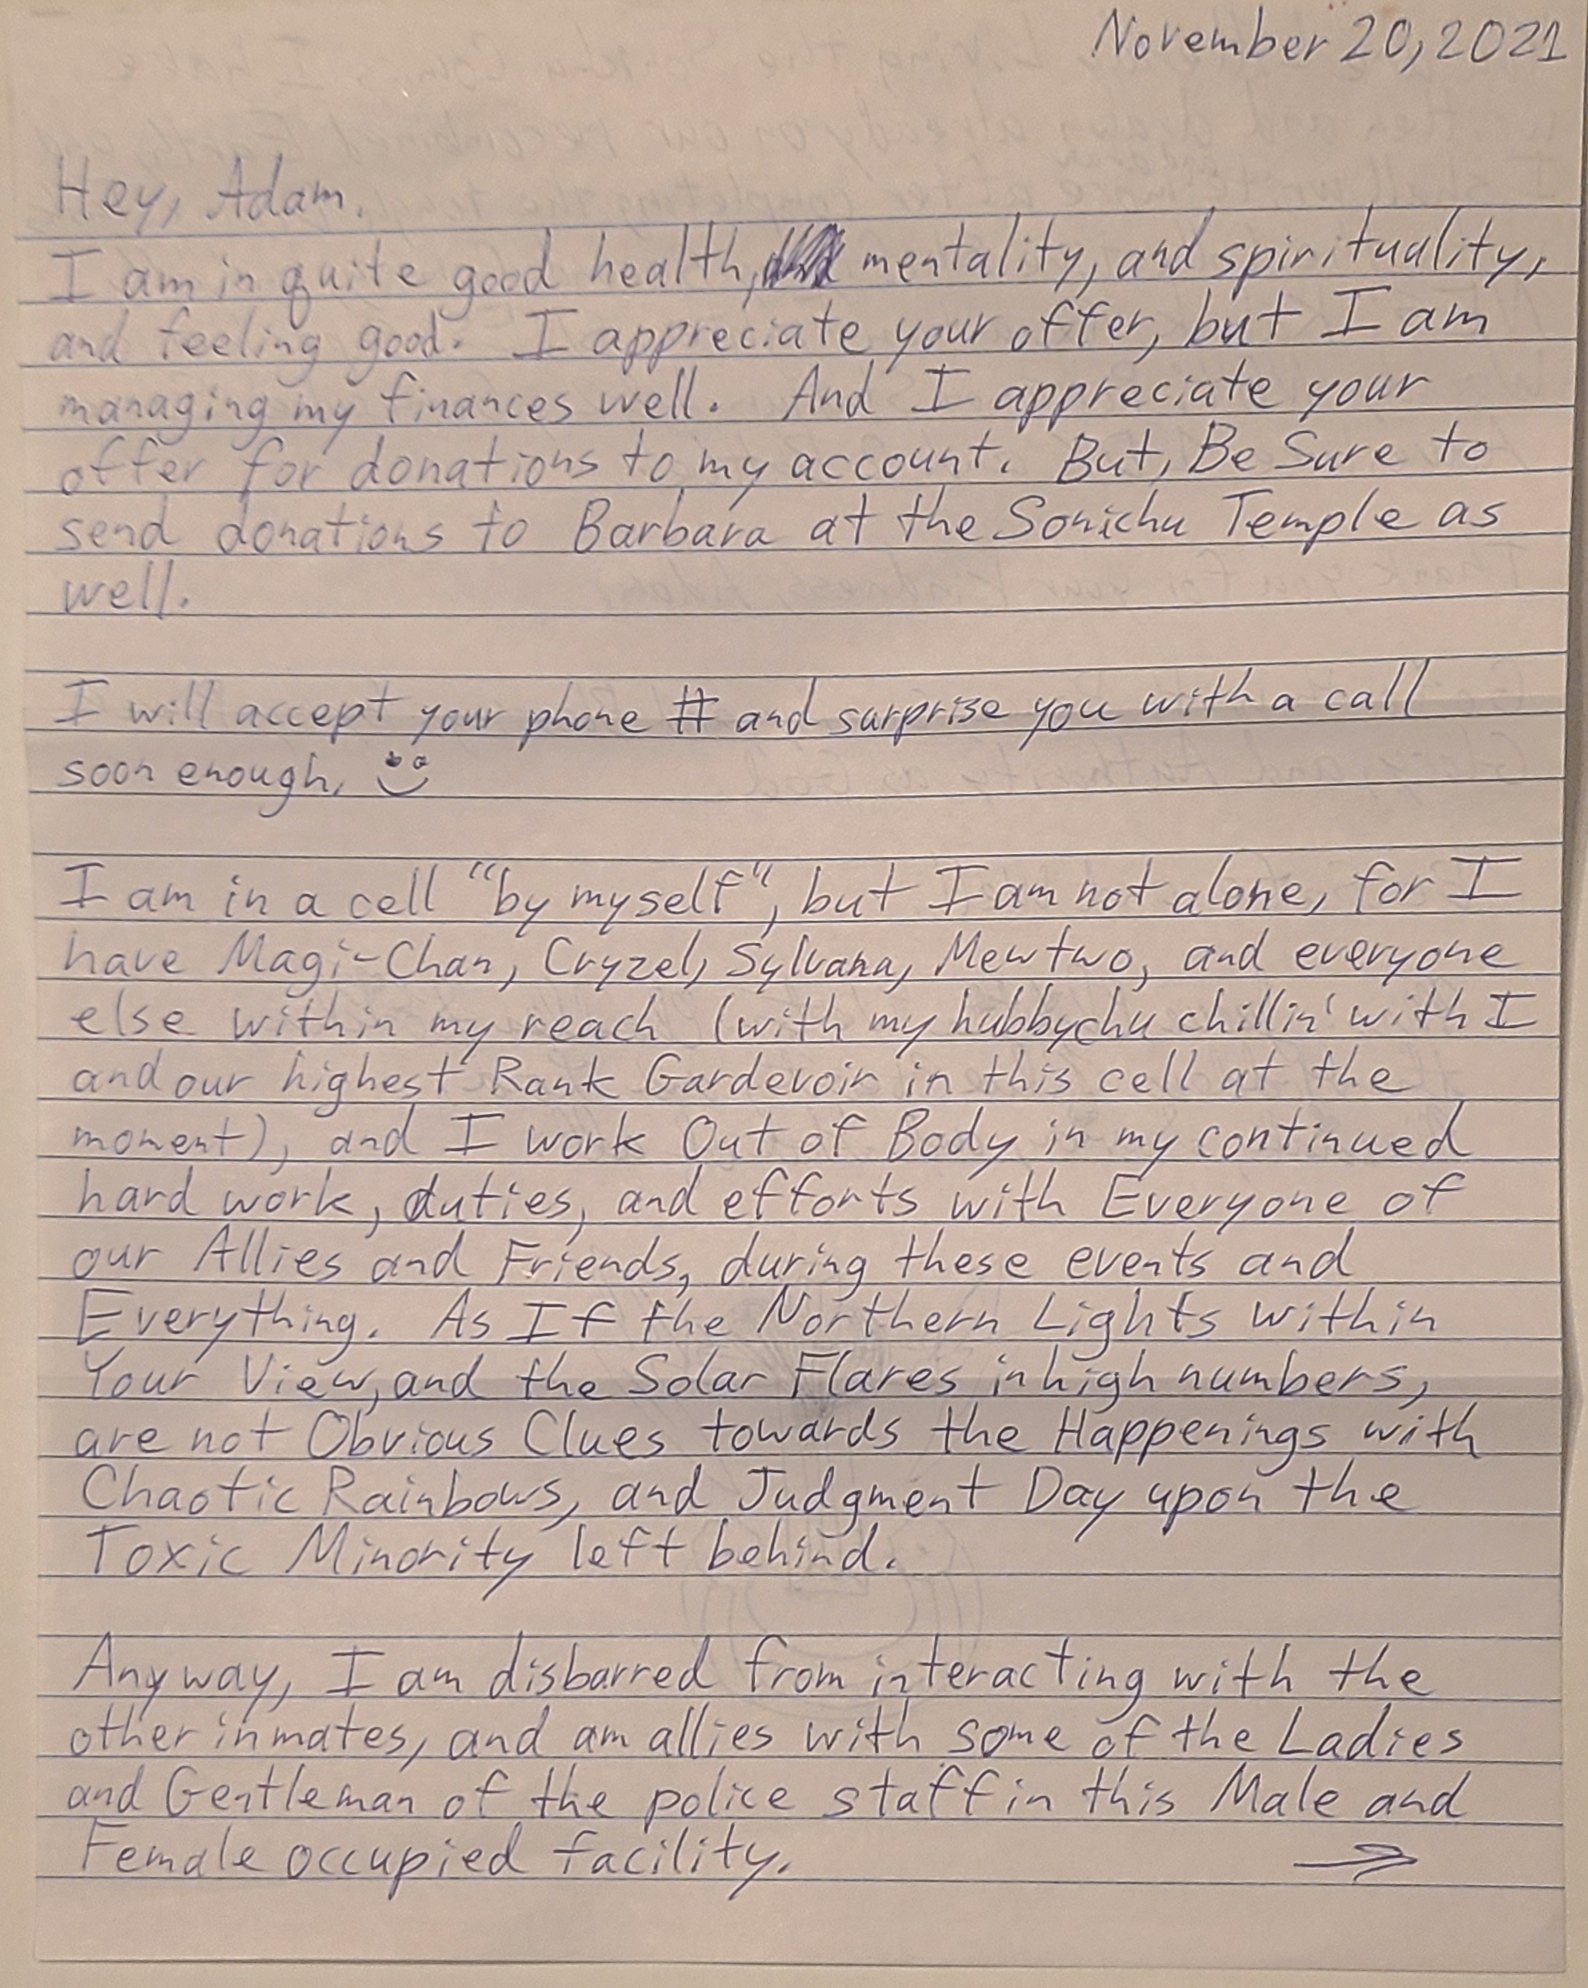 November 20, 2021
Hey, Adam.
I am in quite good health, mentality, and spirituality,
and feeling good. I appreciate your offer, but I am
managing my finances well. And I appreciate your
offer for donations to my account. But, Be Sure to
send donations to Barbara at the Sonichu Temple as
well.
I will accept your phone # and surprise you with a call
soon enough.
I am in a cell "by myself", but I am not alone, for I
have Magi-Chan, Cryzel, Sylvana, Mewtwo, and everyone
else within my reach (with my hubbychu chillin' with I
and our highest Rank Gardevoir in this cell at the
moment), and I work Out of Body in my continued
hard work, duties, and efforts with Everyone of
our Allies and Friends, during these events and
Everything. As If the Northern Lights within
Your View, and the Solar Flares in high numbers,
are not Obvious Clues towards the Happenings with
Chaotic Rainbows, and Judgment Day upon the
Toxic Minority left behind.
Anyway, I am disbarred from interacting with the
other inmates, and am allies with some of the Ladies
and Gentleman of the police staff in this Male and
Female occupied facility.